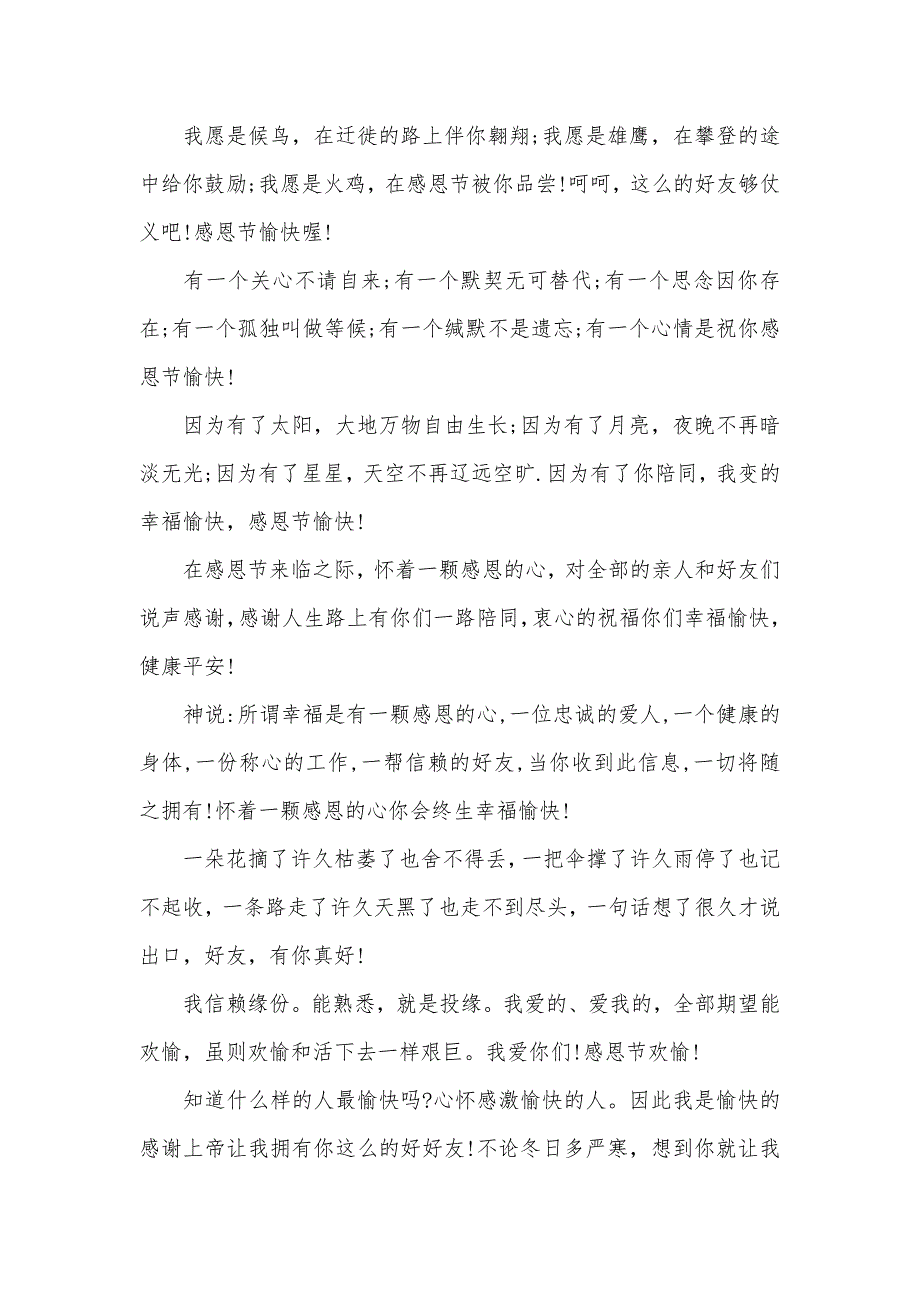 我愿是候鸟，在迁徙的路上伴你翱翔;我愿是雄鹰，在攀登的途
中给你鼓励;我愿是火鸡，在感恩节被你品尝!呵呵，这么的好友够仗
义吧!感恩节愉快喔!
有一个关心不请自来;有一个默契无可替代;有一个思念因你存
在;有一个孤独叫做等候;有一个缄默不是遗忘;有一个心情是祝你感
恩节愉快!
因为有了太阳，大地万物自由生长;因为有了月亮，夜晚不再暗
淡无光;因为有了星星，天空不再辽远空旷.因为有了你陪同，我变的
幸福愉快，感恩节愉快!
在感恩节来临之际，怀着一颗感恩的心，对全部的亲人和好友们
说声感谢，感谢人生路上有你们一路陪同，衷心的祝福你们幸福愉快，
健康平安!
神说:所谓幸福是有一颗感恩的心,一位忠诚的爱人,一个健康的
身体,一份称心的工作,一帮信赖的好友,当你收到此信息,一切将随
之拥有!怀着一颗感恩的心你会终生幸福愉快!
一朵花摘了许久枯萎了也舍不得丢，一把伞撑了许久雨停了也记
不起收，一条路走了许久天黑了也走不到尽头，一句话想了很久才说
出口，好友，有你真好!
我信赖缘份。能熟悉，就是投缘。我爱的、爱我的，全部期望能
欢愉，虽则欢愉和活下去一样艰巨。我爱你们!感恩节欢愉!
知道什么样的人最愉快吗?心怀感激愉快的人。因此我是愉快的
感谢上帝让我拥有你这么的好好友!不论冬日多严寒，想到你就让我